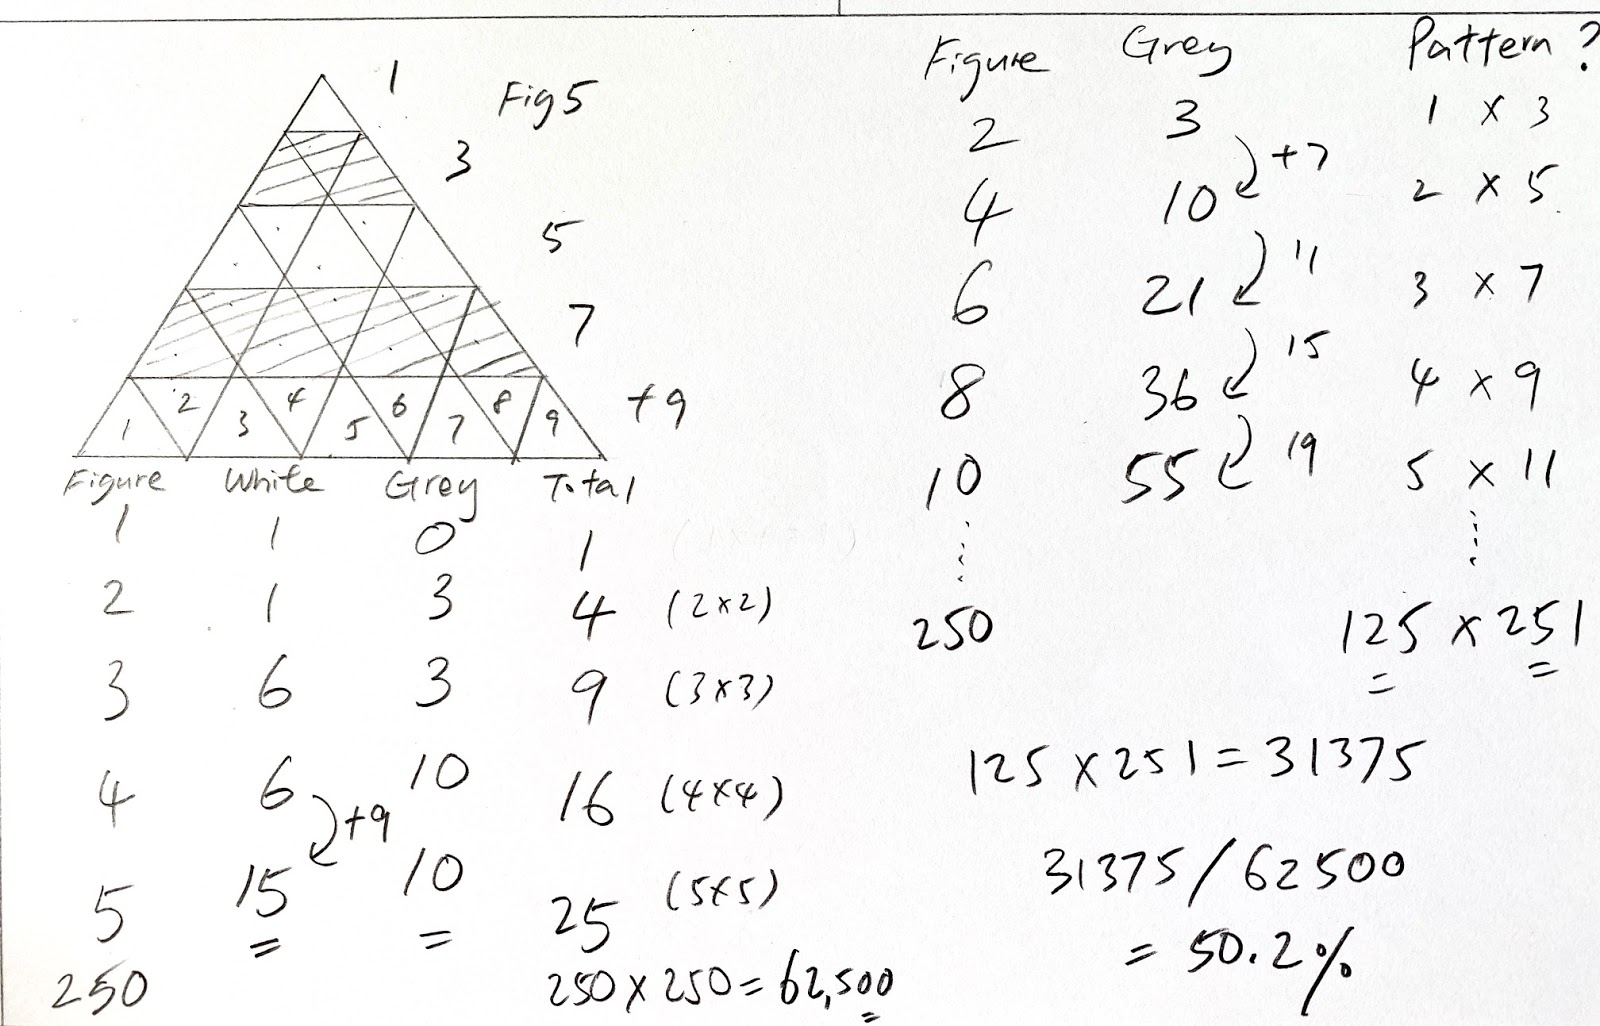 1
Fig 5
3
5
7
1 2 3 4 5 6 7 8 9
+9
Figure White Grey Total
1 1 0 1
2 1 3 4 (2x2)
3 6 3 9 (3x3)
4 6 10 16 (4x4)
+9
5 15 10 25 (5x5)
250 250 x 250 = 62,500
Figure Grey Pattern ?
2 3 1 x 3
+7
4 10 2 x 5
11
6 21 3 x 7
15
8 36 4 x 9
19
10 55 5 x 11
250 125 x 251
125 x 251 = 31375
31375 / 62500
= 50.2%